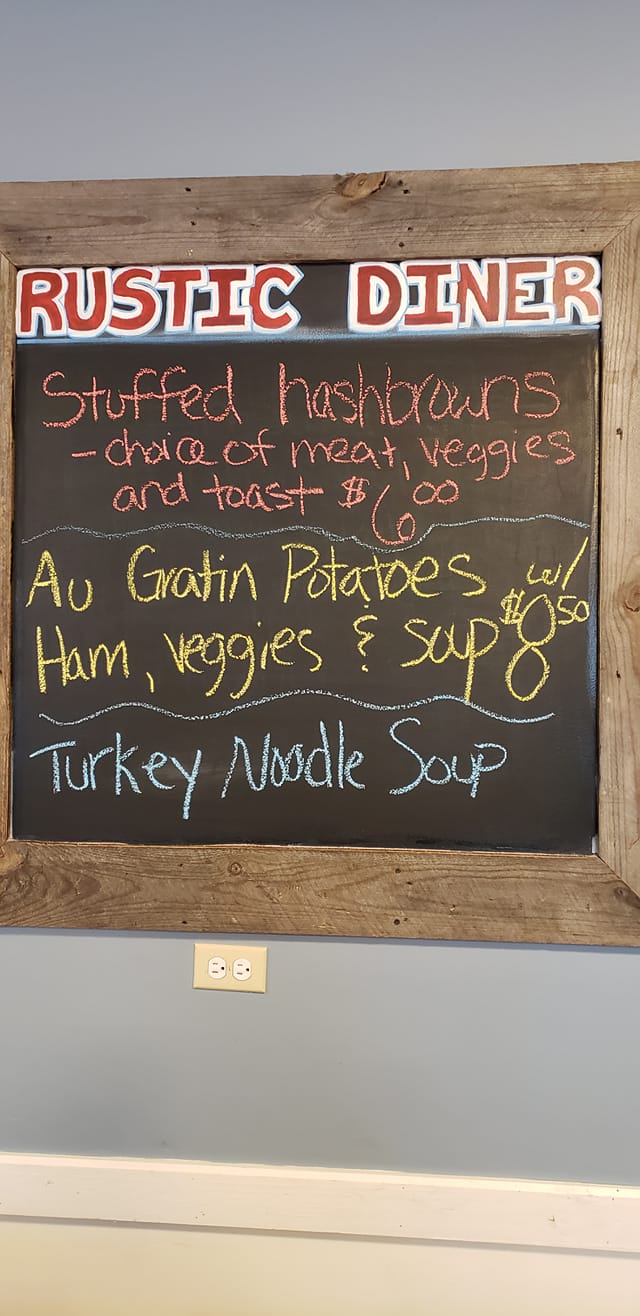 RUSTIC DINER
Stuffed hashbrowns
- choice of meat, veggies
and toast $6.00
Au Gratin Potatoes w/
Ham, veggies & soup $8.50
Turkey Noodle Soup